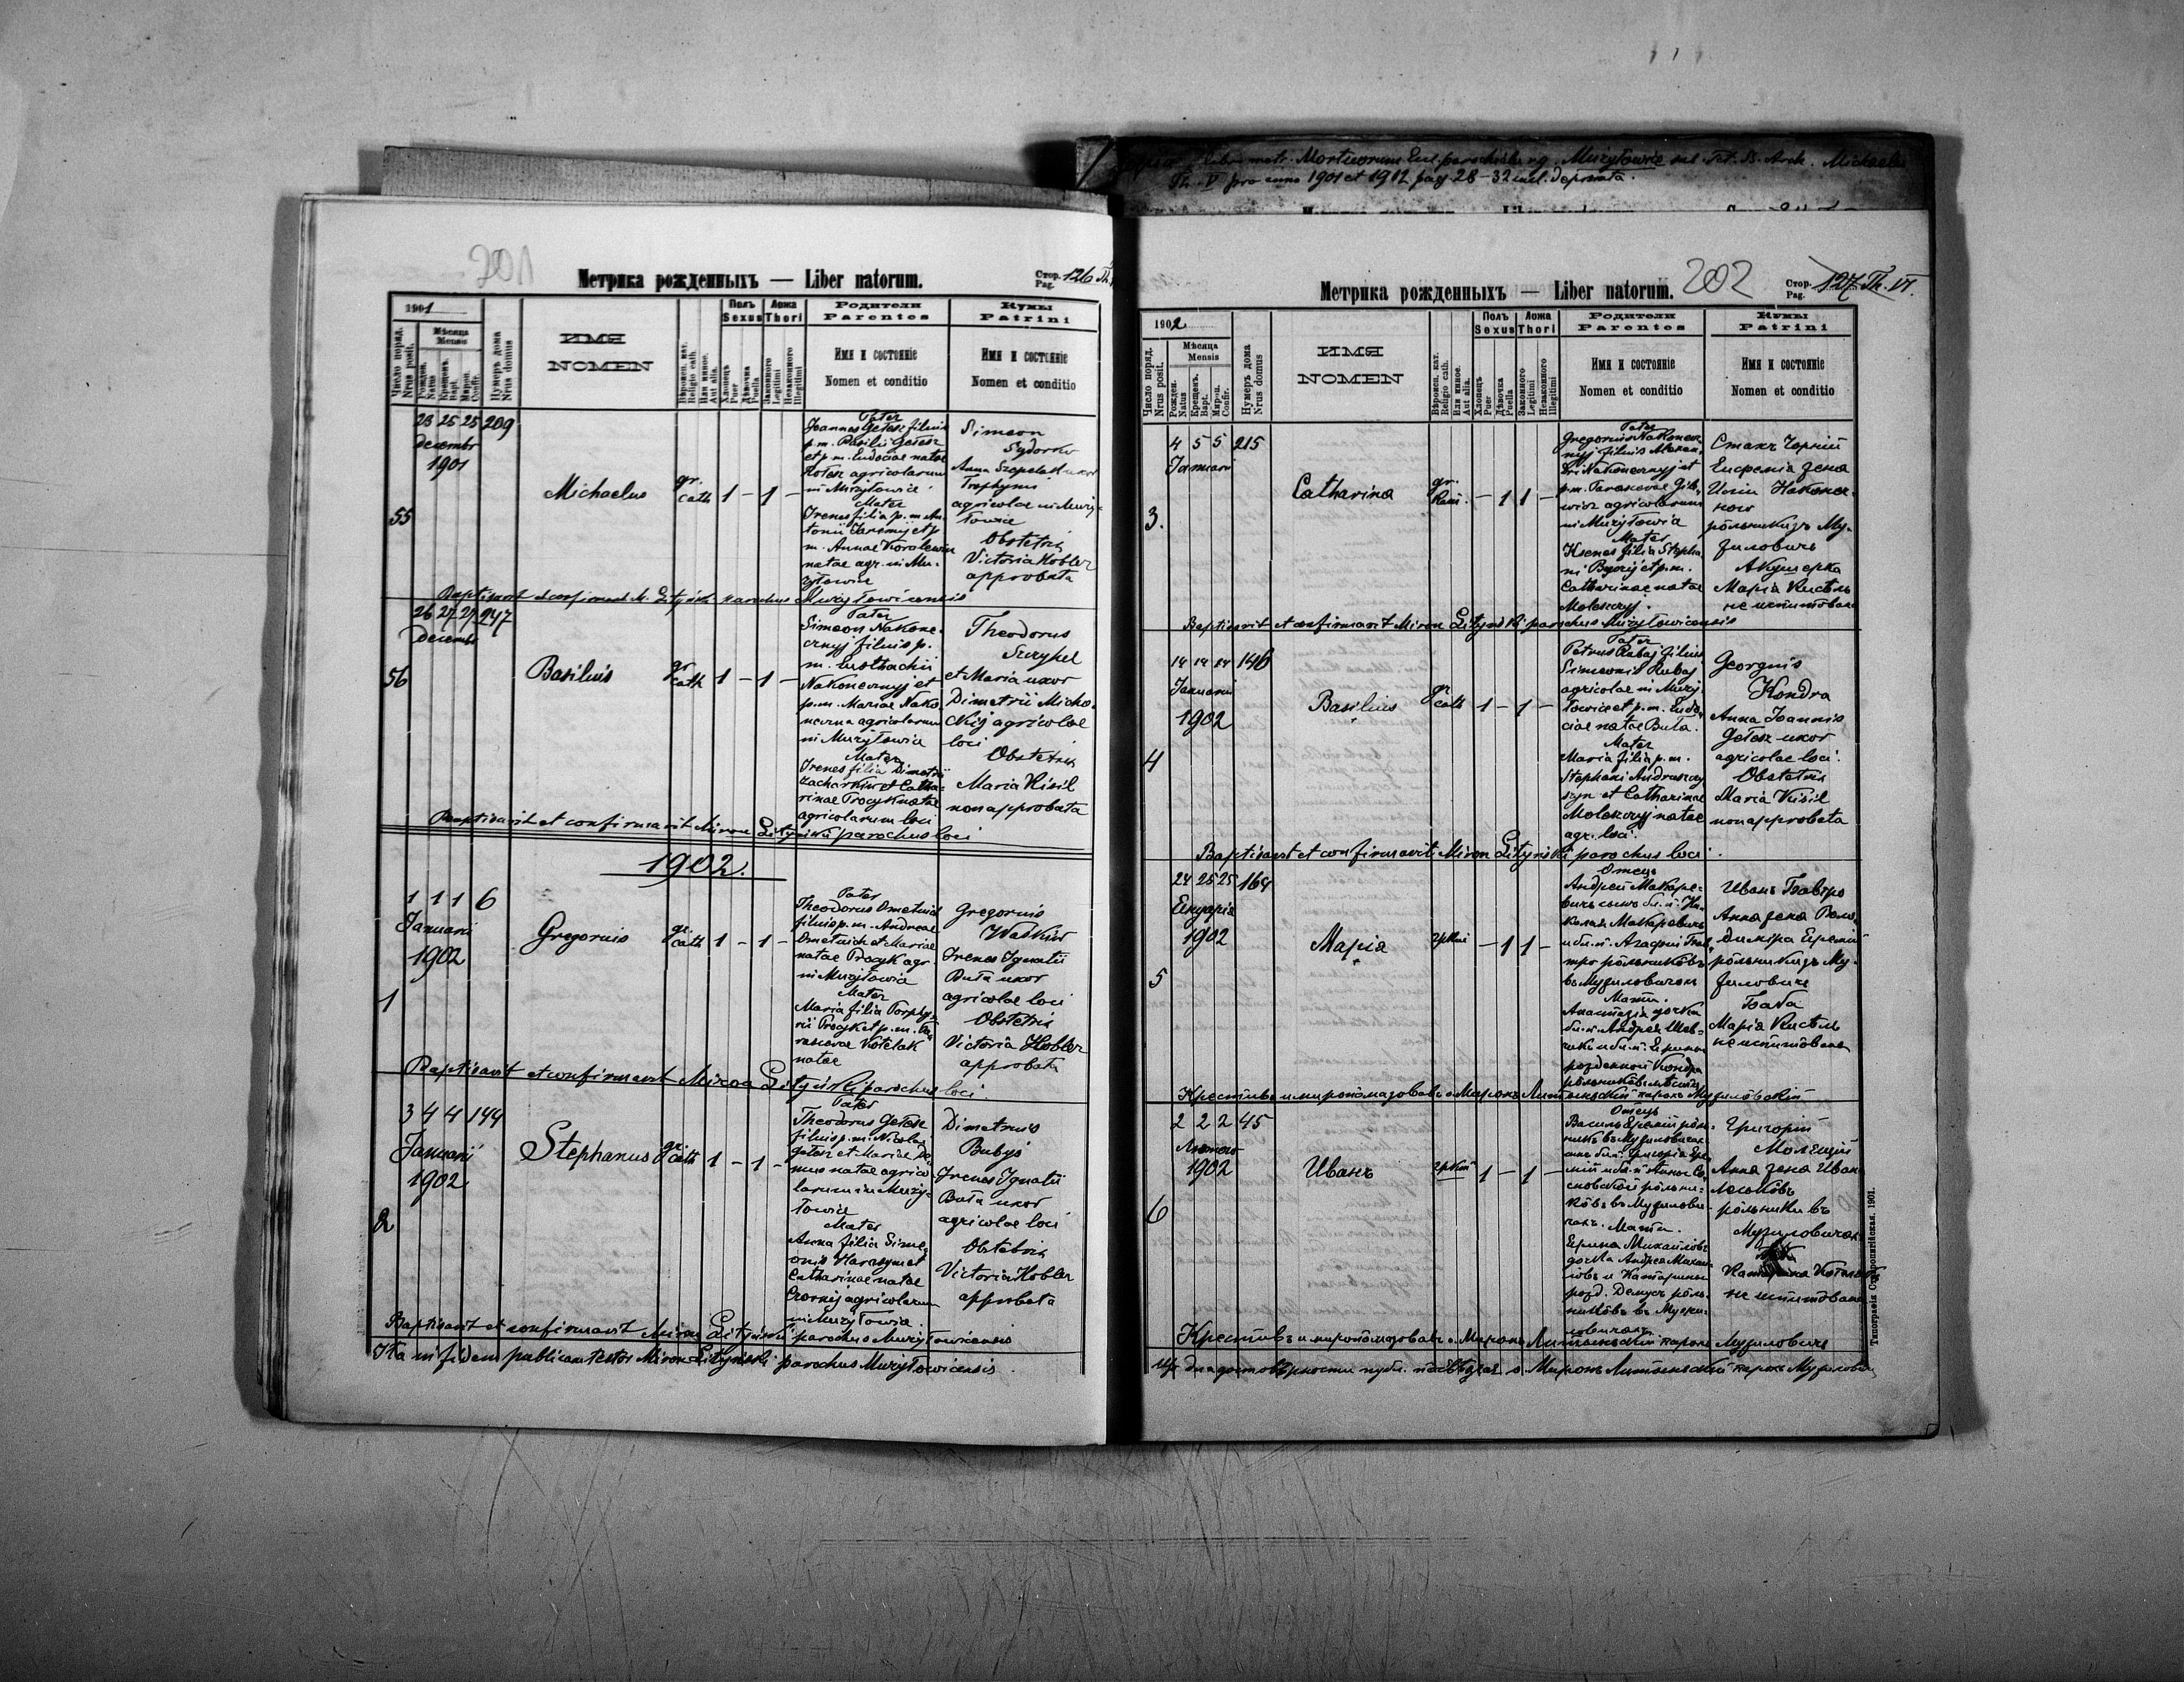 Libri metr. Mortuorum Eccl. parochialis Mużyłowice Michaelis
Th. V pro anno 1901 et 1902 pag 28-32 incl.
201
Метрика рожденныхъ — Liber natorum.
Стор. Pag. 126 Th.
1901
Число поряд. Nrus posit.
Мѣсяца Mensis
Рожден. Natus
Крещенъ. Bapt.
Миров. Confir.
Нумеръ дома Nrus domus
ИМЯ
NOMEN
Вѣроисп. кат. Religio cath.
Или иное. Aut alia.
Полъ Sexus
Хлопецъ Puer
Дѣвочка Puella
Ложа Thori
Законного Legitimi
Незаконного Illegitimi
Родители
Parentes
Имя и состояніе
Nomen et conditio
Кумы
Patrini
Имя и состояніе
Nomen et conditio
55
23 25 25 209
decembr
1901
Michaelus
gr. cath 1 – 1 –
Pater
Joannes Gełesz filius
p. m. Basilii Gełesz
et p. m. Eudociae natae
agricolarum
in Mużyłowice
Mater
Irenes filia p. m. An-
tonii Jaremij et p.
m. Annae Kowalewicz
natae agr. in Mu-
żyłowice
Simeon
Sydorko
Anna uxor
Trophymi
agricolae in Muży-
łowice
Obstetrix
Victoria Kobler
approbata
Baptisavit et confirmavit M. Lityński parochus Mużyłowicensis
56
26 27 27 247
Decembr
Basilius
gr. cath 1 – 1 –
Pater
Simeon Nakone-
cznyj filius p.
m. Eustachii
Nakonecznyj et
p. m. Mariae Nako-
neczna agricolarum
in Mużyłowice
Mater
Irenes filia Dimetrii
Zacharkiw et Catha-
rinae Procyk natae
agricolarum loci
Theodorus
et Maria uxor
Dimetrii Micha-
ckij agricolae
loci
Obstetrix
Maria Kisil
non approbata
Baptisavit et confirmavit Miron Lityński parochus loci
1902.
1
1 1 1 6
Januarii
1902
Gregorius
gr. cath 1 – 1 –
Pater
Theodorus
filius p. m. Andreae
et Mariae
natae Procyk agr.
in Mużyłowice
Mater
Maria filia Porphy-
rii Procyk et p. m. Pa-
rascevae Kotelak
natae
Gregorius
Waśkiw
Irenes Ignatii
Buta uxor
agricolae loci
Obstetrix
Victoria Kobler
approbata
Baptisavit et confirmavit Miron Lityński parochus loci.
2
3 4 4 144
Januarii
1902
Stephanus
gr. cath 1 – 1 –
Pater
Theodorus Gełesz
filius p. m. Nicolai
Gełesz et Mariae De-
mus natae agrico-
larum in Muży-
łowice
Mater
Anna filia Sime-
onis Harasym et
Catharinae natae
Czornij agricolarum
in Mużyłowice.
Dimetrius
Bubys
Irenes Ignatii
Buta uxor
agricolae loci
Obstetrix
Victoria Kobler
approbata
Baptisavit et confirmavit Miron Lityński parochus Mużyłowicensis
Ita in fidem publicam testor Miron Lityński parochus Mużyłowicensis.
Метрика рожденныхъ — Liber natorum.
202
Стор. Pag. 127 Th. VI.
1902
Число поряд. Nrus posit.
Мѣсяца Mensis
Рожден. Natus
Крещенъ. Bapt.
Миров. Confir.
Нумеръ дома Nrus domus
ИМЯ
NOMEN
Вѣроисп. кат. Religio cath.
Или иное. Aut alia.
Полъ Sexus
Хлопецъ Puer
Дѣвочка Puella
Ложа Thori
Законного Legitimi
Незаконного Illegitimi
Родители
Parentes
Имя и состояніе
Nomen et conditio
Кумы
Patrini
Имя и состояніе
Nomen et conditio
3.
4 5 5 215
Januarii
Catharina
gr. – 1 1 –
Pater
Gregorius Nakonecz-
nyj filius Alexan-
dri Nakonecznyj et
p. m. Parascevae
agricolarum
in Mużyłowice
Mater
Ksenes filia Stepha-
ni et p. m.
Catharinae natae
Moleszyj.
Стахъ Чорній
Евфемія жена
Иліи Наконеч-
ного
рольники зъ Му-
жиловичъ
Акушерка
Марія Кисѣль
не испитована
Baptisavit et confirmavit Miron Lityński parochus Mużyłowicensis
4
14 14 14 146
Januarii
1902
Basilius
gr. cath 1 – 1 –
Pater
Petrus Rubaj filius
Simeonis Rubaj
agricolae in Muży-
łowice et p. m. Eudo-
ciae natae Buta.
Mater
Maria filia p. m.
Stephani
et Catharinae
Moleszyj natae
agr. loci.
Georgius
Kondra
Anna Joannis
Gełesz uxor
agricolae loci.
Obstetrix
Maria Kisil
non approbata
Baptisavit et confirmavit Miron Lityński parochus loci.
5
24 25 25 164
Януарія
1902
Марія
гр. кат – 1 1 –
Отецъ
Андрей Макаре-
вичъ сынъ бл. п. Ни-
колая Макаревичъ
и бл. п. Агафіи Гав-
тро рольниковъ
въ Мужиловичахъ
Мати.
Анастазія дочка
бл. п. Андрея Шев-
чика и бл. п. Ирины
рожденной Кондра
Иванъ Гавтро
Анна жена Воло-
диміра Яремій
рольники зъ Му-
жиловичъ
Баба
Марія Кисѣль
не испитована
Крестивъ и миропомазовавъ о. Миронъ Литиньскій парохъ Мужиловскій
6
2 2 2 45
Лютого
1902
Иванъ
гр. кат 1 – 1 –
Отецъ
Василь Яремій роль-
никъ въ Мужиловичахъ
сынъ бл. п. Григорія Яре-
мій и бл. п. Анны
рольни-
ковъ въ Мужилови-
чахъ. Мати.
Ирина Михайловъ
дочка Андрея Михай-
ловъ и Катарины
рожд. Демусъ роль-
никовъ въ Мужи-
ловичахъ
Григорій
Молещій
Анна жена Ивана
Леськовъ
рольники въ
Мужиловичахъ
Катарина
не испитована
Крестивъ и миропомазовавъ о. Миронъ Литиньскій парохъ Мужиловичъ
для достовѣрности публ. о. Миронъ Литиньскій парохъ
Типографія Ставропигійская. 1901.